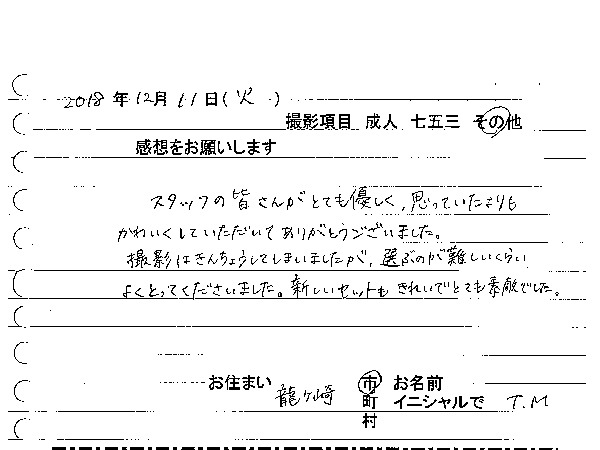 2018 年 12月 11日( 火 )
撮影項目 成人 七五三 その他
感想をお願いします
スタッフの皆さんがとても優しく、思っていたよりも
かわいくしていただいてありがとうございました。
撮影はきんちょうしてしまいましたが、選ぶのが難しいくらい
よくとってくださいました。新しいセットもきれいでとても素敵でした。
お住まい 龍ヶ崎 市 お名前
町 イニシャルで T.M
村